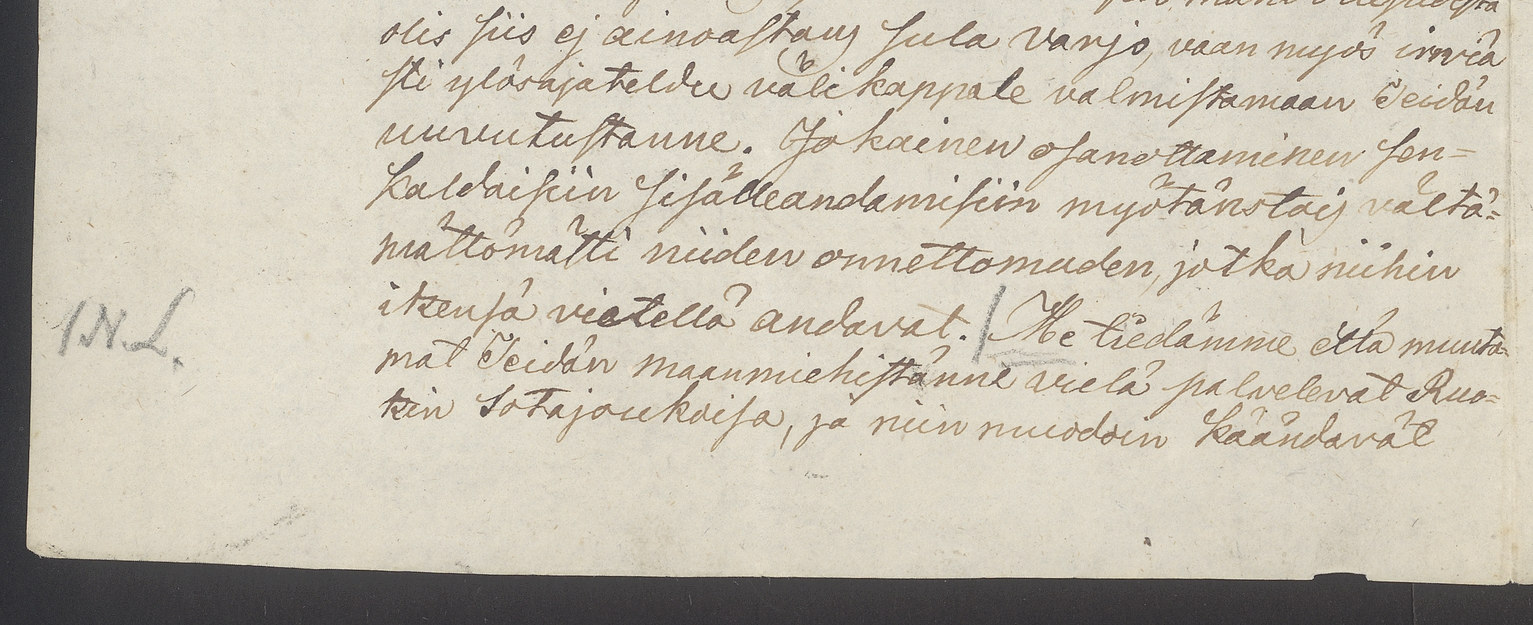 olis siis ej ainoastans sula varjo, vaan myös irwiä
sti ylösajateldu välikappale valmistamaan Teidän
uuvutustanne. Jokainen osanottaminen sen-
kaldaisiin sisälleandamisiin myötänstoij vältä=
mättömästi niiden onnettomuden, jotka niihin
itzensä vietellä andavat. / Me tiedämme että muuta=
1 N. L.
mat Teidän maanmiehistänne vielä palvelevat Ruo=
tzin Sotajoukoisa, ja niin muodoin käändävät